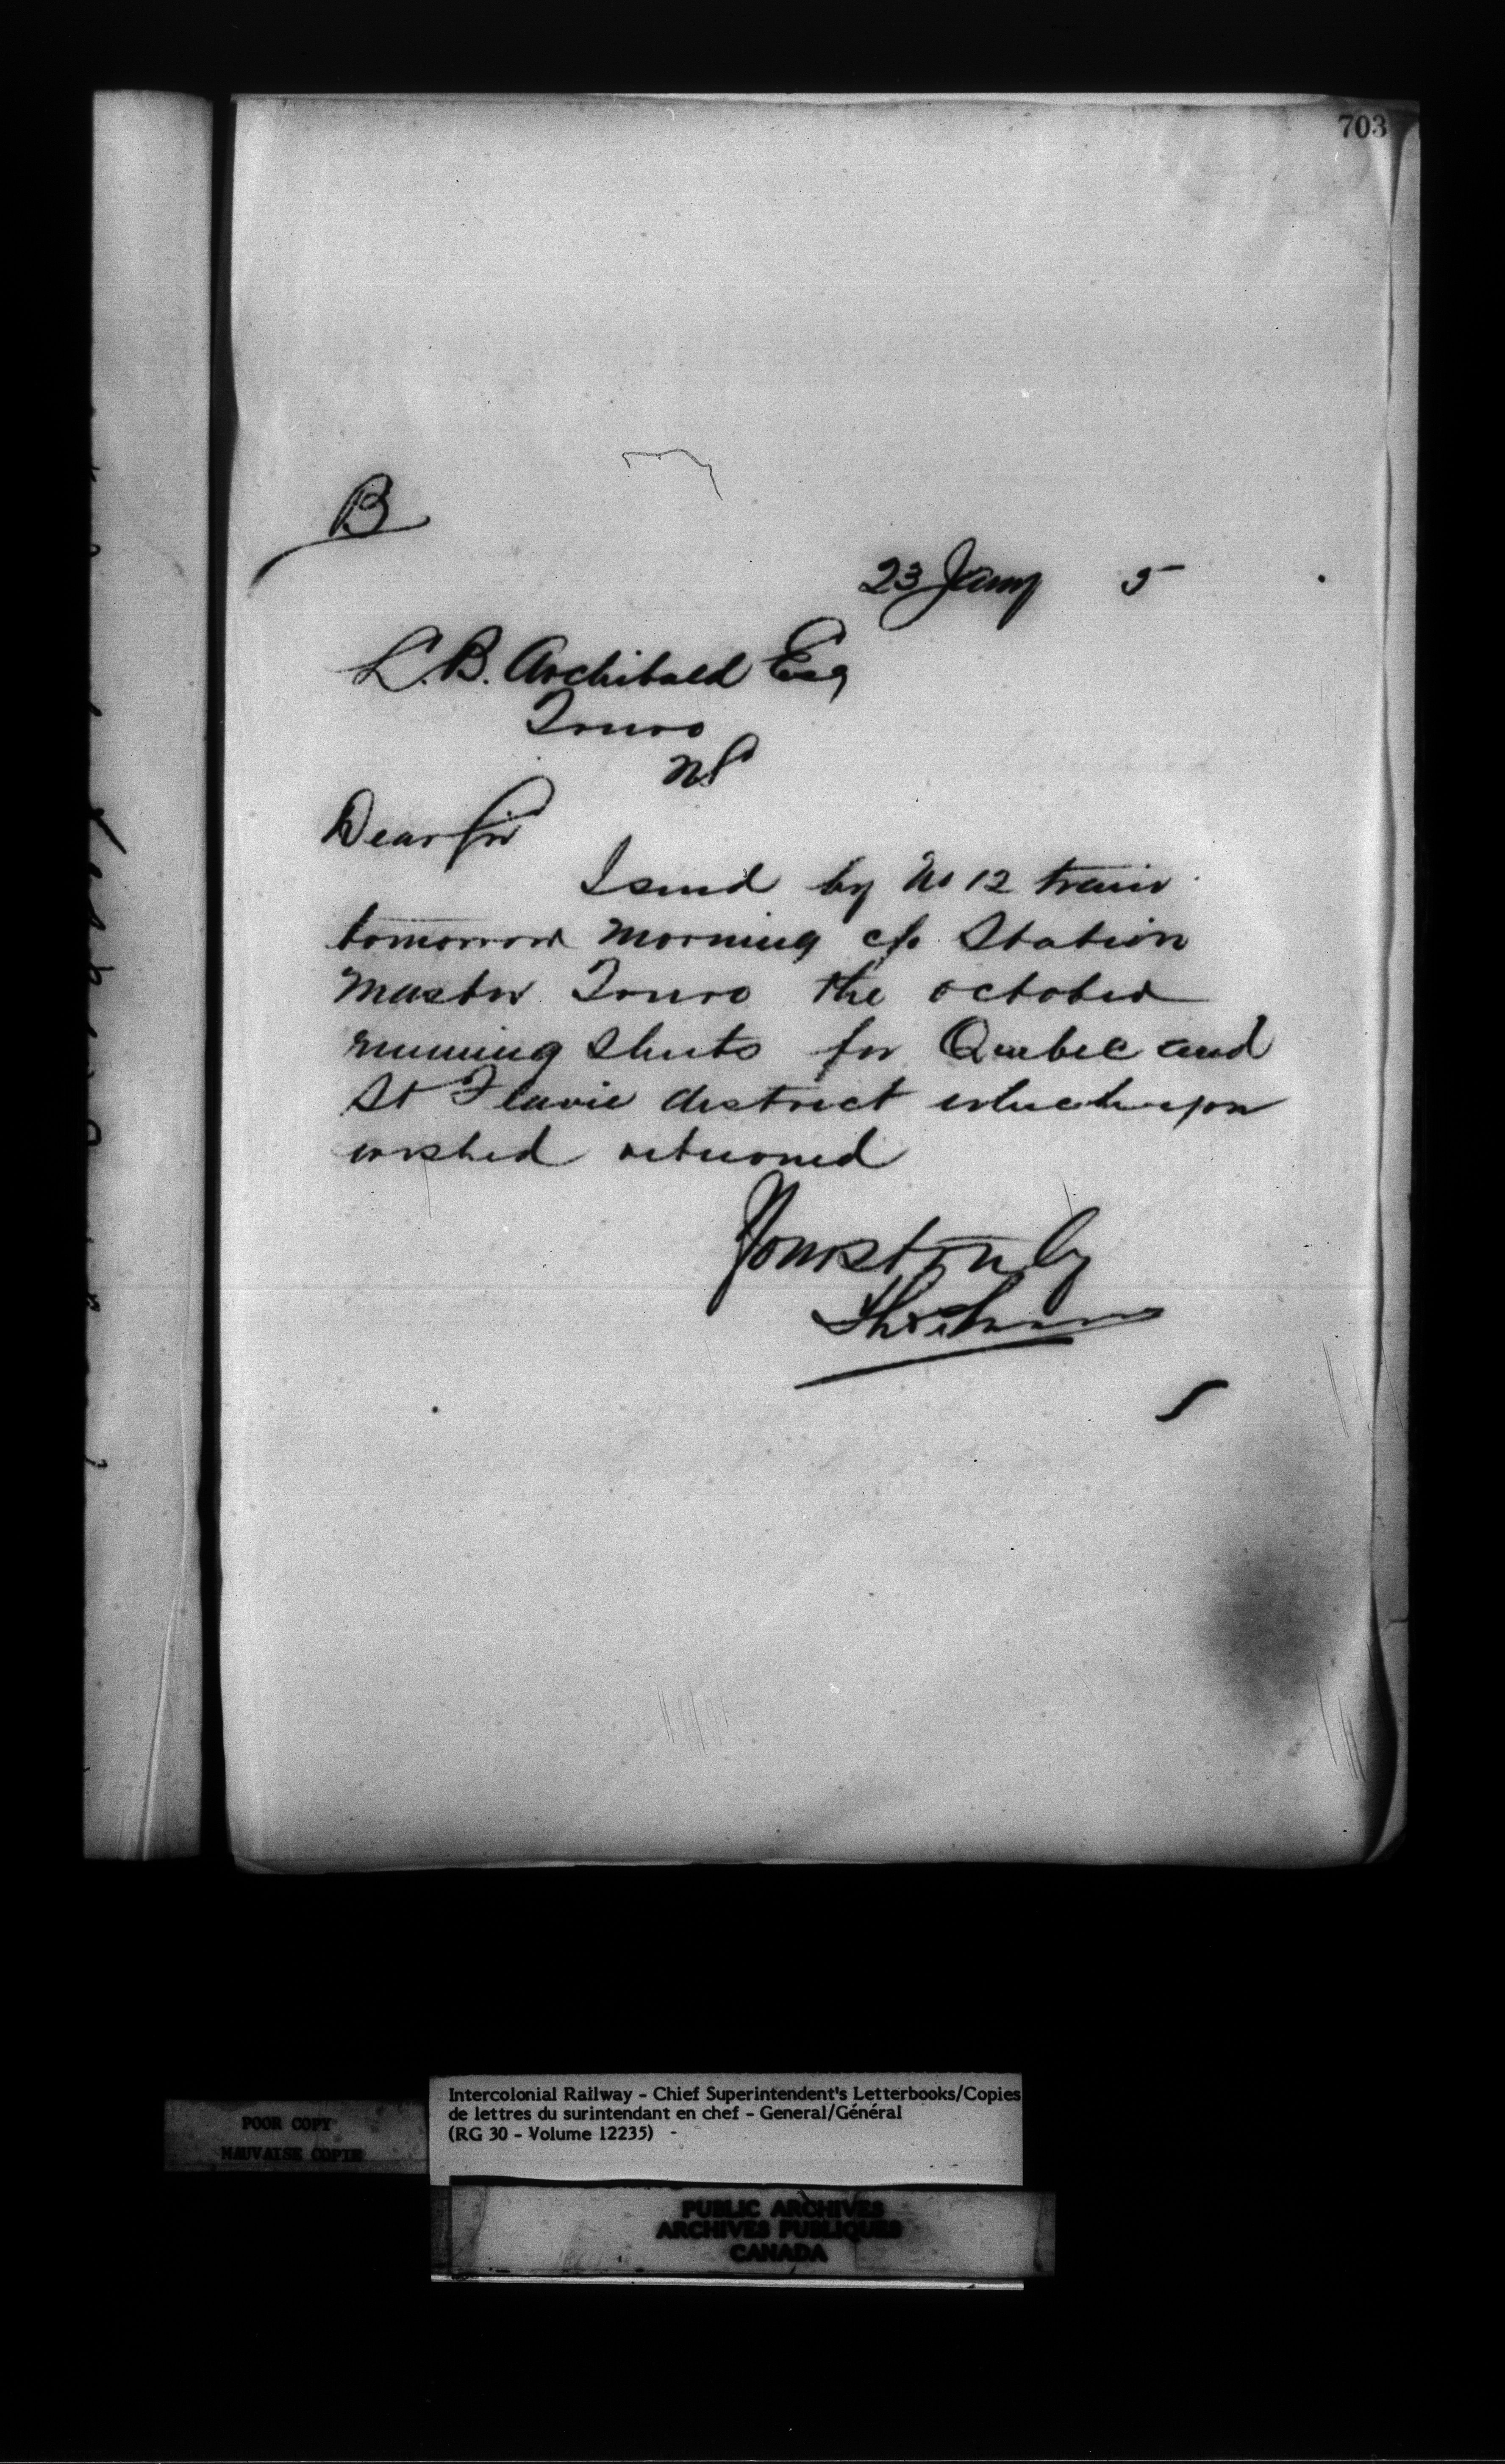 703
B
23 Jany 5
L.B. Archibald Esq
Truro
NS
Dear Sir
I send by No 12 train
tomorrow morning c/o Station
Master Truro the october
running sheets for Quebec and
St Flavie district which you
wished returned
Yours truly
POOR COPY
MAUVAISE COPIE
Intercolonial Railway - Chief Superintendent's Letterbooks/Copies
de lettres du surintendant en chef - General/Général
(RG 30 - Volume 12235) -
PUBLIC ARCHIVES
ARCHIVES PUBLIQUES
CANADA